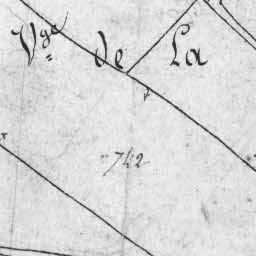 Vge de La
742